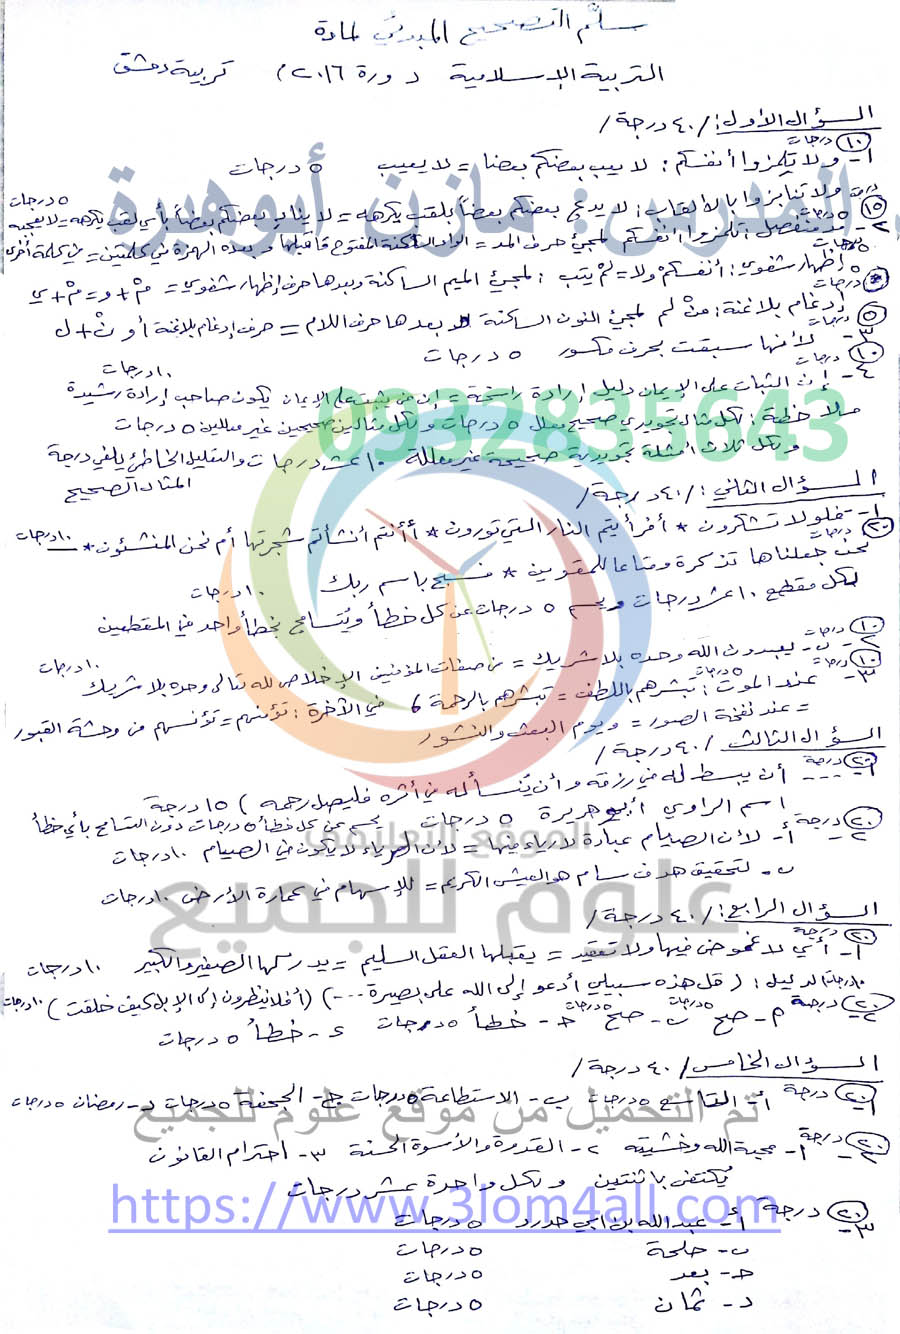 سلّم التصحيح المبدئي لمادة
التربية الإسلامية دورة ٢٠١٦م تربية دمشق
السؤال الأول: /٤٠ درجة/
١٠ درجات
١- ولا تلمزوا أنفسكم: لا يعب بعضكم بعضا = لا يعيب ٥ درجات
ولا تنابزوا بالألقاب: لا يدع بعضكم بعضاً بلقب يكرهه = لا ينادِ بعضكم بعضاً بأي لقب يكرهه = ٥ درجات
١٥ درجة
٢- مد منفصل: تلمزوا أنفسكم لمجيء حرف المد = الواو الساكنة المفتوح ما قبلها وبعده الهمزة في كلمتين = في كلمة أخرى ٥ درجات
إظهار شفوي: أنفسكم ولا = لم يتب: لمجيء الميم الساكنة وبعدها حرف إظهار شفوي = مْ + و = مْ + ي ٥ درجات
إدغام بلا غنة: من لم لمجيء النون الساكنة وبعدها حرف اللام = حرف إدغام بلا غنة أو نْ + ل ٥ درجات
٥ درجات
٣- لأنها سبقت بحرف مكسور ٥ درجات
١٠ درجات
٤- إن الثبات على الإيمان دليل إرادة راسخة = إن من يثبت على الإيمان يكون صاحب إرادة رشيدة ١٠ درجات
ملاحظة: لكل مثال تجويدي صحيح معلل ٥ درجات ولكل مثالين صحيحين غير معللين ٥ درجات
ولكل ثلاث أمثلة تجويدية صحيحة غير معللة ١٠ عشر درجات والتعليل الخاطئ يلغي درجة
المثال الصحيح
السؤال الثاني: /٤٠ درجة/
٢٠ درجة
١- فلولا تشكرون * أفرأيتم النار التي تورون * أأنتم أنشأتم شجرتها أم نحن المنشئون * ١٠ درجات
نحن جعلناها تذكرة ومتاعا للمقوين * فسبح باسم ربك ١٠ درجات
لكل مقطع ١٠ عشر درجات ويحسم ٥ درجات عن كل خطأ ويُتسامح بخطأ واحد في المقطعين
١٠ درجات
٢- ب- يعبدون الله وحده بلا شريك = من صفات المؤمنين الإخلاص لله تعالى وحده بلا شريك ١٠ درجات
١٠ درجات
٣- عند الموت: تبشرهم باللطف = تبشرهم بالرحمة ٥ درجات في الآخرة: تؤمنهم = تؤنسهم من وحشة القبور
= عند نفخة الصور = ويوم البعث والنشور
السؤال الثالث /٤٠ درجة/
٢٠ درجة
١- .... أن يبسط له في رزقه وأن يُنسأ له في أثره فليصل رحمه) ١٥ درجة
اسم الراوي أبو هريرة ٥ درجات يحسم عن كل خطأ ٥ درجات دون التسامح بأي خطأ
٢٠ درجة
٢- أ- لأن الصيام عبادة لا رياء فيها = لأن الرياء لا يكون في الصيام ١٠ درجات
ب- لتحقيق هدف سام هو العيش الكريم = للإسهام في عمارة الأرض ١٠ درجات
السؤال الرابع: /٤٠ درجة/
٢٠ درجة
١- أي لا غموض فيها ولا تعقيد = يقبلها العقل السليم = يدركها الصغير والكبير ١٠ درجات
الدليل: (قل هذه سبيلي أدعو إلى الله على بصيرة ....) (أفلا ينظرون إلى الإبل كيف خلقت) ١٠ درجات
٢٠ درجة
٢- أ- صح ٥ درجات ب- صح ٥ درجات ج- خطأ ٥ درجات د- خطأ ٥ درجات
السؤال الخامس /٤٠ درجة/
٢٠ درجة
١- أ- ٥ درجات ب- الاستطاعة ٥ درجات ج- الجحفة ٥ درجات د- رمضان ٥ درجات
٢٠ درجة
٢- ١- محبة الله وخشيته ٢- القدوة والأسوة الحسنة ٣- احترام القانون
يُكتفى باثنتين ولكل واحدة عشر درجات
٢٠ درجة
٣- أ- عبد الله بن أبي حدرد ٥ درجات
ب- طلحة ٥ درجات
ج- بعد ٥ درجات
د- ثمان ٥ درجات
المدرس: مازن أبوهدة
0932835643
الموقع التعليمي
علوم للجميع
تم التحميل من موقع علوم للجميع
https://www.3lom4all.com